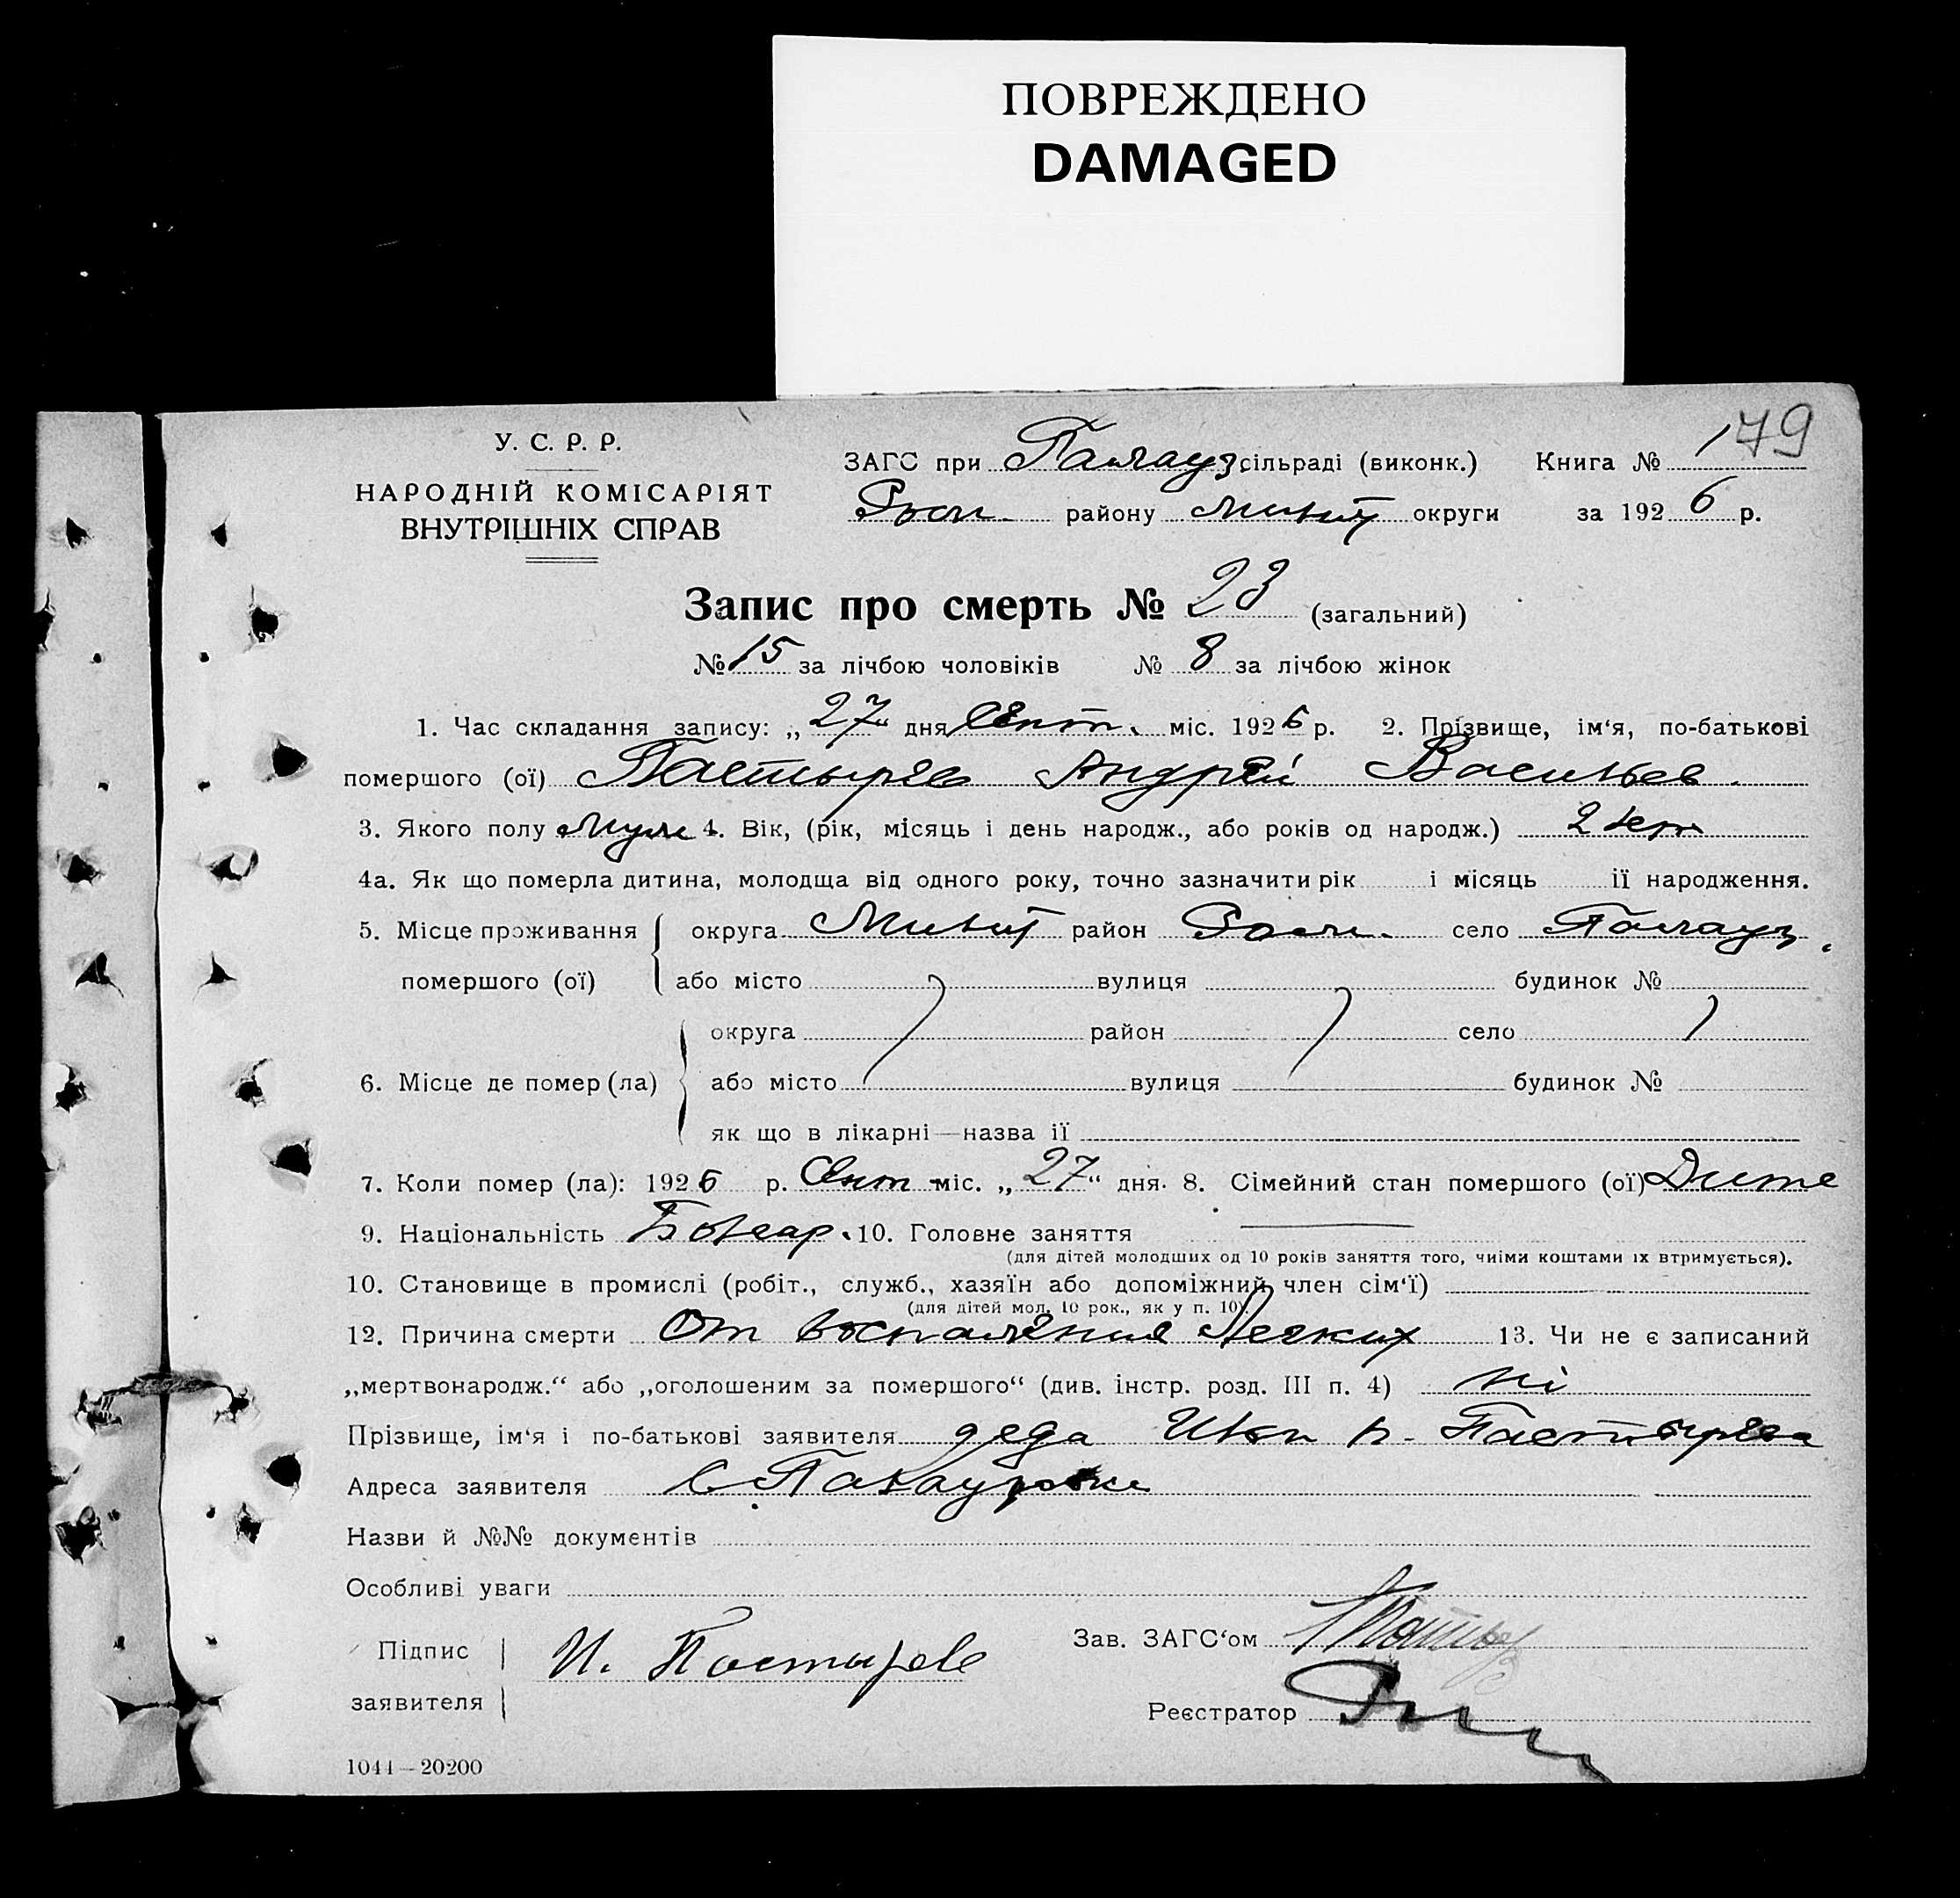 ПОВРЕЖДЕНО
DAMAGED
179
У. С. Р. Р.
НАРОДНІЙ КОМІСАРІЯТ
ВНУТРІШНІХ СПРАВ
ЗАГС при сільраді (виконк.) Книга №
району округи за 1926 р.
Запис про смерть № 23 (загальний)
№ 15 за лічбою чоловіків № 8 за лічбою жінок
1. Час складання запису: „27“ дня Сент. міс. 1926 р. 2. Прізвище, ім‘я, по-батькові
помершого (ої) Пастырев Андрей Васильев.
3. Якого полу Муж 4. Вік, (рік, місяць і день народж., або років од народж.) 2 лет
4а. Як що померла дитина, молодща від одного року, точно зазначити рік і місяць її народження.
5. Місце проживання округа район село
помершого (ої) або місто вулиця будинок №
округа район село
6. Місце де помер (ла) або місто вулиця будинок №
як що в лікарні—назва її
7. Коли помер (ла): 1926 р. Сент міс. „27“ дня. 8. Сімейний стан помершого (ої) Дитя
9. Національність Болгар. 10. Головне заняття
(для дітей молодших од 10 років заняття того, чиїми коштами їх втримується).
10. Становище в промислі (робіт., служб., хазяїн або допоміжний член сім‘ї)
(для дітей мол. 10 рок., як у п. 10).
12. Причина смерти От воспаления Легких 13. Чи не є записаний
„мертвонародж.“ або „оголошеним за помершого“ (див. інстр. розд. III п. 4) ні
Прізвище, ім‘я і по-батькові заявителя деда Пастырева
Адреса заявителя С.
Назви й №№ документів
Особливі уваги
Підпис
заявителя
И. Пастырев
Зав. ЗАГС‘ом
Реєстратор
1044—20200